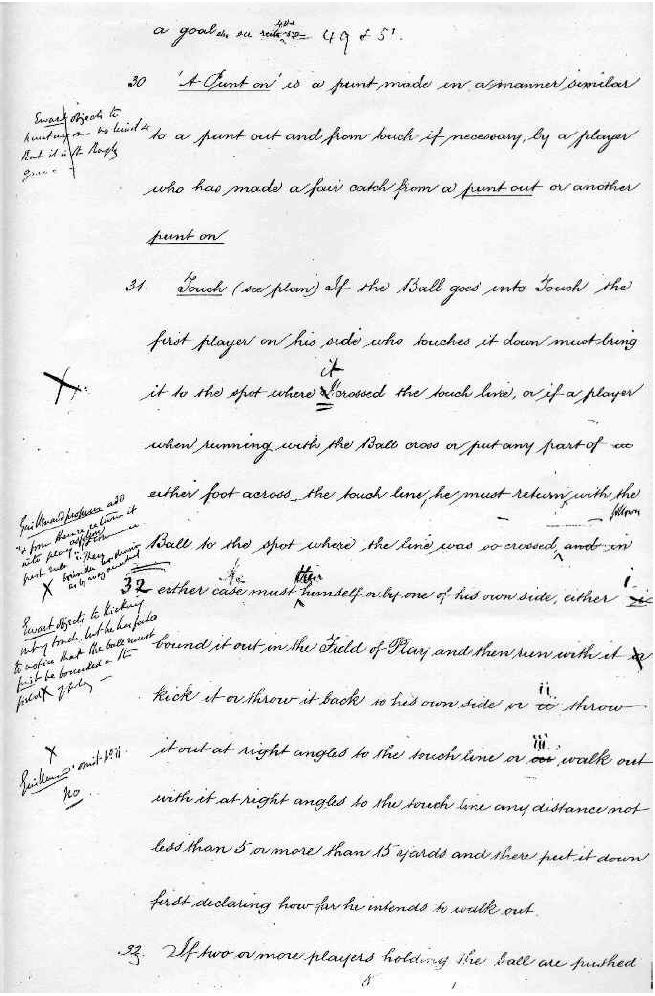 a goal see rule = 49 & 51.
30 'A Punt on' is a punt made in a manner similar
to a punt out and from touch if necessary, by a player
who has made a fair catch from a punt out or another
punt on
Ewart objects to
31 Touch (see plan) If the Ball goes into Touch the
first player on his side who touches it down must bring
it
it to the spot where crossed the touch line, or if a player
when running with the Ball cross or put any part of
either foot across the touch line, he must return with the
Ball to the spot where the line was so crossed, and in
32 either case must himself or by one of his own side, either i
then
bound it out in the Field of Play and then run with it
kick it or throw it back to his own side or ii throw
it out at right angles to the touch line or iii walk out
with it at right angles to the touch line any distance not
less than 5 or more than 15 yards and there put it down
first declaring how far he intends to walk out.
Ewart objects to kicking
into touch but he has failed
to notice that the ball must
first be bounded in the
field of play
omit
No
32 If two or more players holding the ball are pushed